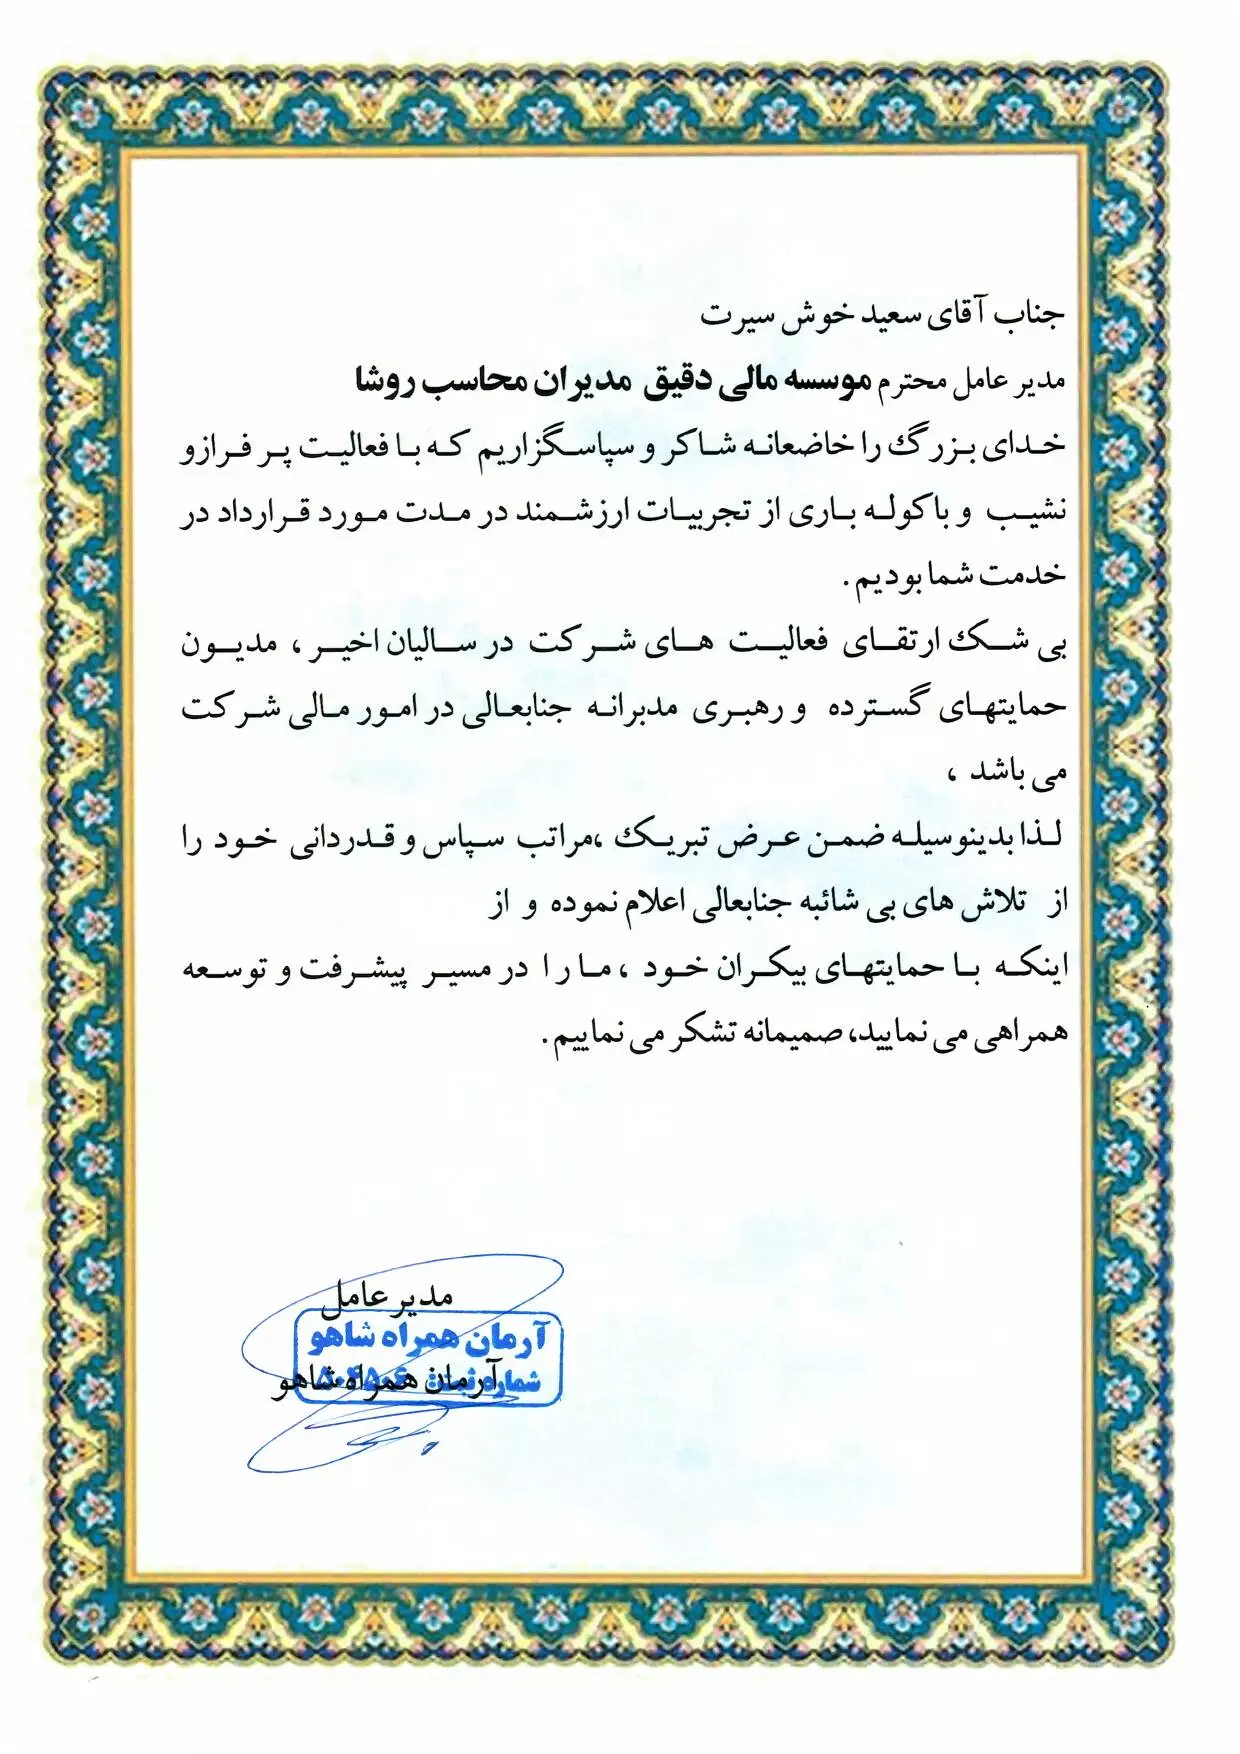 جناب آقای سعید خوش سیرت
مدیر عامل محترم موسسه مالی دقیق مدیران محاسب روشا
خدای بزرگ را خاضعانه شاکر و سپاسگزاریم که با فعالیت پر فرازو
نشیب و باکوله باری از تجربیات ارزشمند در مدت مورد قرارداد در
خدمت شما بودیم .
بی شک ارتقای فعالیت های شرکت در سالیان اخیر ، مدیون
حمایتهای گسترده و رهبری مدبرانه جنابعالی در امور مالی شرکت
می باشد ،
لذا بدینوسیله ضمن عرض تبریک ،مراتب سپاس و قدردانی خود را
از تلاش های بی شائبه جنابعالی اعلام نموده و از
اینکه با حمایتهای بیکران خود ، ما را در مسیر پیشرفت و توسعه
همراهی می نمایید، صمیمانه تشکر می نماییم .
مدیر عامل
آرمان همراه شاهو
شماره ثبت
آرمان همراه شاهو